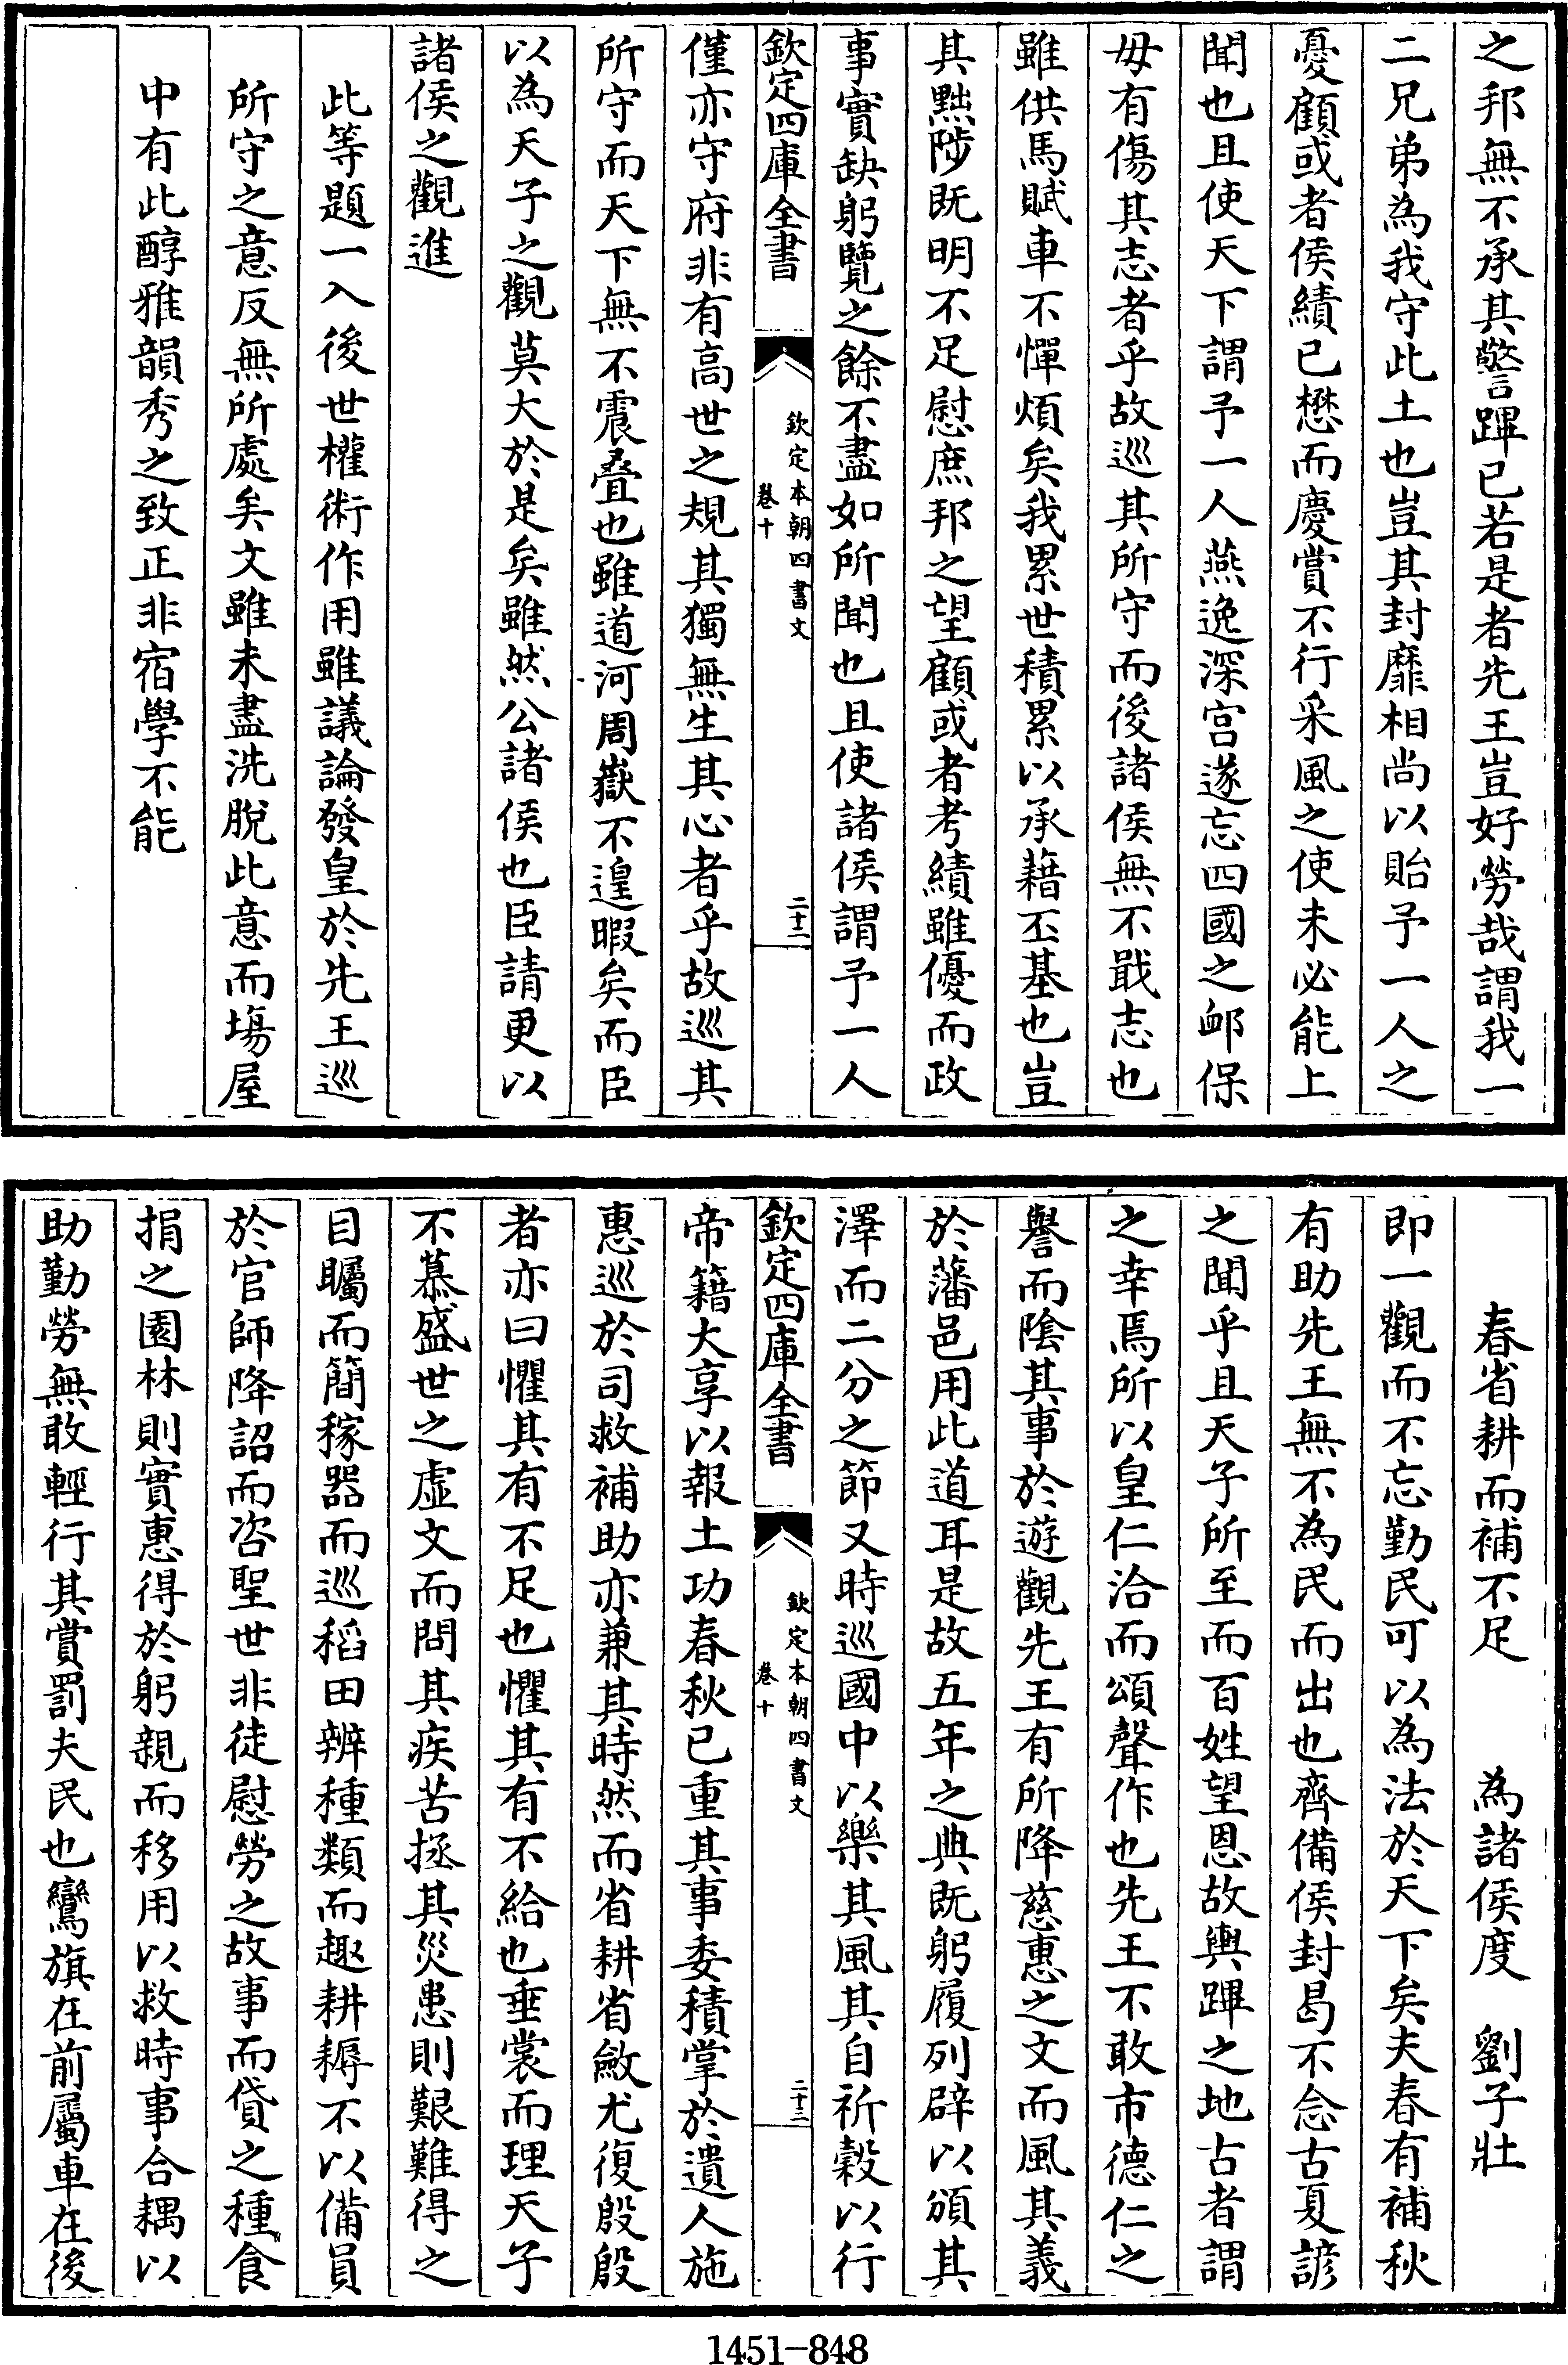 之邦無不承其警蹕已若是者先王豈好勞哉謂我一
二兄弟為我守此土也豈其封靡相尚以貽予一人之
憂顧或者侯績已懋而慶賞不行采風之使未必能上
聞也且使天下謂予一人燕逸深宫遂忘四國之邮保
毋有傷其志者乎故巡其所守而後諸侯無不戢志也
雖供馬賦車不憚煩矣我累世積累以承藉丕基也豈
其黜陟既明不足慰庶邦之望顧或者考績雖優而政
事實缺躬覽之餘不盡如所聞也且使諸侯謂予一人
欽定四庫全書
欽定本朝四書文
卷十
二十二
僅亦守府非有高世之規其獨無生其心者乎故巡其
所守而天下無不震疊也雖道河周嶽不遑暇矣而臣
以為天子之觀莫大於是矣雖然公諸侯也臣請更以
諸侯之觀進
此等題一入後世權術作用雖議論發皇於先王巡
所守之意反無所處矣文雖未盡洗脫此意而塲屋
中有此醇雅韻秀之致正非宿學不能
春省耕而補不足 為諸侯度 劉子壯
即一觀而不忘勤民可以為法於天下矣夫春有補秋
有助先王無不為民而出也齊備侯封曷不念古夏諺
之聞乎且天子所至而百姓望恩故輿蹕之地古者謂
之幸焉所以皇仁洽而頌聲作也先王不敢市德仁之
譽而陰其事於遊觀先王有所降慈惠之文而風其義
於藩邑用此道耳是故五年之典既躬履列辟以頒其
澤而二分之節又時巡國中以樂其風其自祈穀以行
欽定四庫全書
欽定本朝四書文
卷十
二十三
帝籍大享以報土功春秋已重其事委積掌於遺人施
惠巡於司救補助亦兼其時然而省耕省斂尤復殷殷
者亦曰懼其有不足也懼其有不給也垂裳而理天子
不慕盛世之虛文而問其疾苦拯其災患則艱難得之
目矚而簡稼器而巡稻田辨種類而趣耕耨不以備員
於官師降詔而咨聖世非徒慰勞之故事而貸之種食
捐之園林則實惠得於躬親而移用以救時事合耦以
助勤勞無敢輕行其賞罰夫民也鸞旗在前屬車在後
1451-848